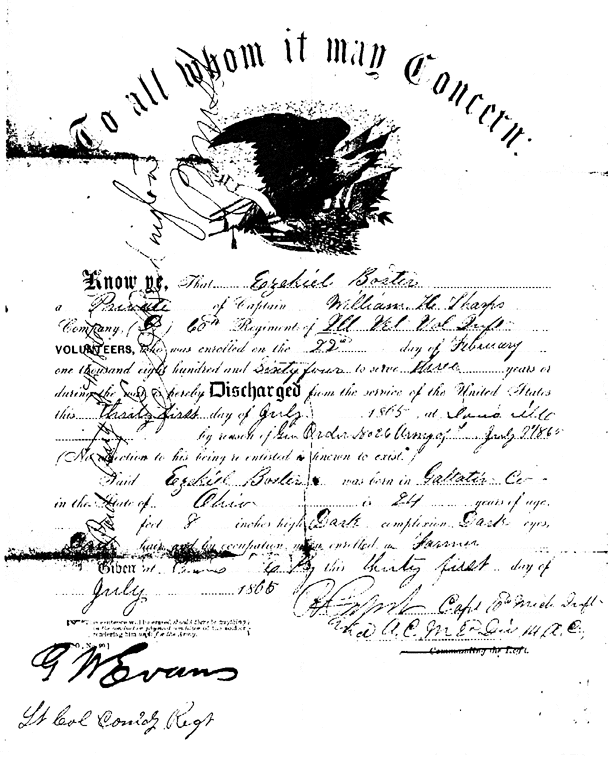 To all whom it may Concern:
Know ye, That Ezekiel Boster
a Private of Captain William H. Sharps
Company, ( ) 60th Regiment of Ill Vet Vol Inft
VOLUNTEERS, who was enrolled on the 22d day of February
one thousand eight hundred and sixty four to serve three years or
during the war, is hereby Discharged from the service of the United States
this thirty first day of July, 1865, at
by reason of Gen Order No 26 Army of July 1865
(No objection to his being re-enlisted is known to exist.)
Said Ezekiel Boster was born in Gallatin Co
in the State of Ohio is 24 years of age,
feet 8 inches high, Dark complexion, Dark eyes,
hair, and by occupation, when enrolled, a Farmer
Given at Ky this thirty first day of
July 1865
Capt 10th Mich Inft
A. C. M. 2d Div 14 A. C.
Commanding the Reg't.
G W Evans
Lt Col Comdg Regt
Paid